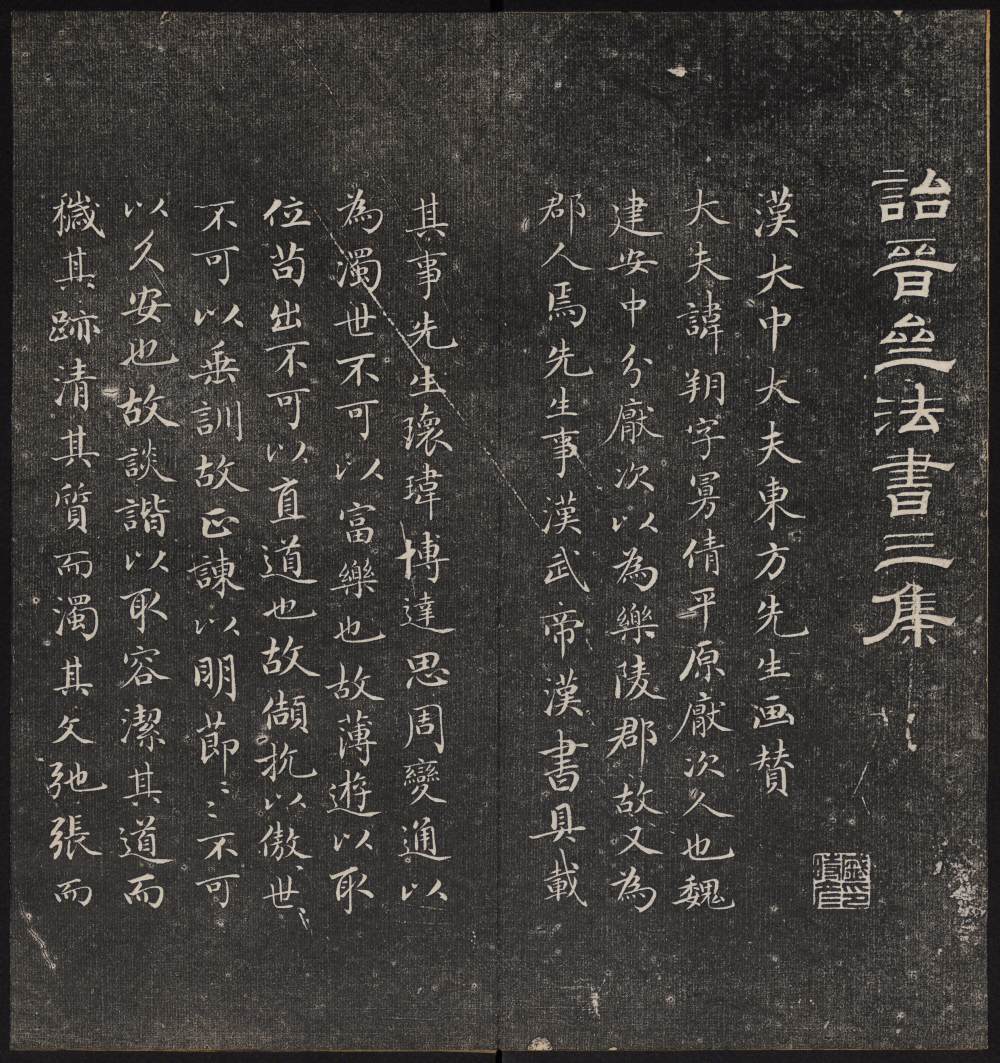 詒晉齋法書三集
漢大中大夫東方先生画賛
大夫諱朔字曼倩平原厭次人也魏
建安中分厭次以為樂陵郡故又為
郡人焉先生事漢武帝漢書具載
其事先生瓌瑋博達思周變通以
為濁世不可以富樂也故薄遊以取
位苟出不可以直道也故頡抗以傲世〻
不可以垂訓故正諫以明節〻不可
以久安也故談諧以取容潔其道而
穢其跡清其質而濁其文弛張而